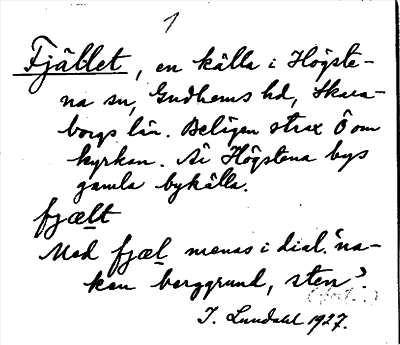 1
Fjället, en källa i Högste-
na sn, Gudhems hd, Skara-
borgs län. Belägen strax Ö om
kyrkan. Är Högstena bys
gamla bykälla.
fjælt
Med fjæl menas i dial. "na-
ken berggrund, sten"
I. Lundahl 1927.